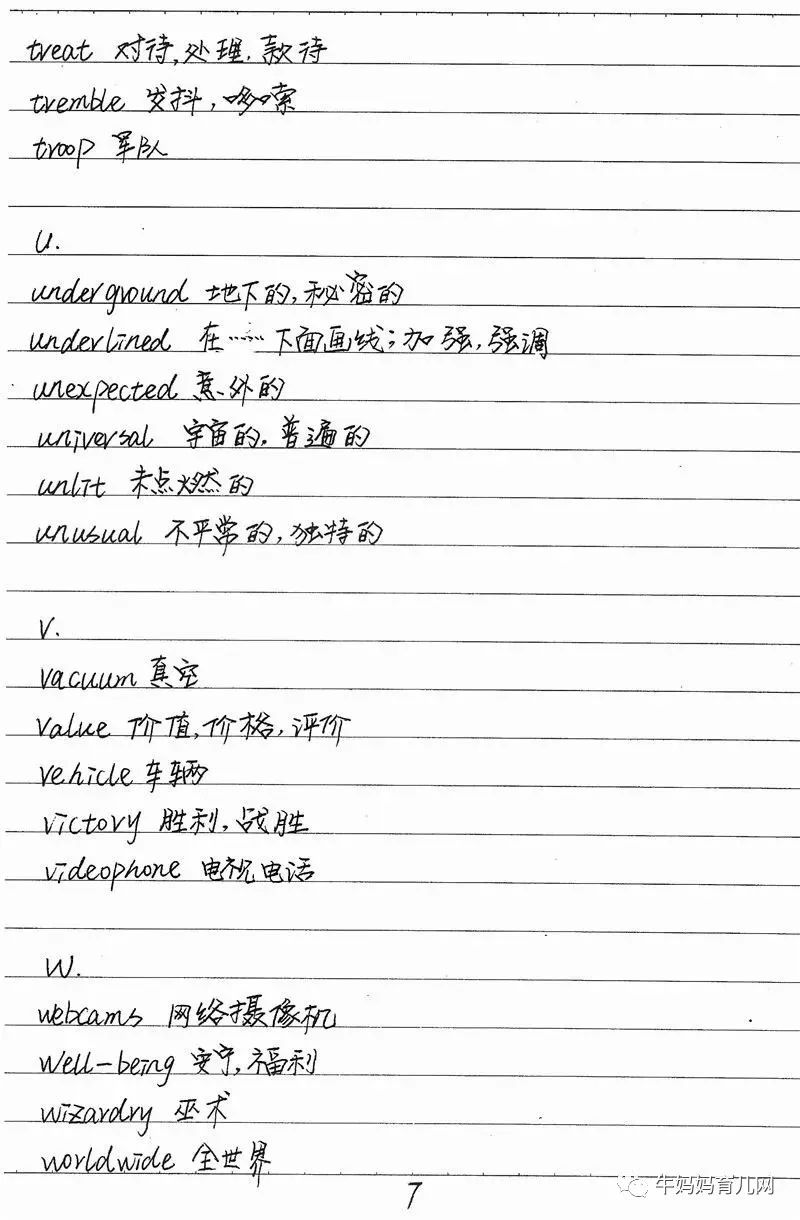 treat 对待,处理,款待
tremble 发抖,哆嗦
troop 军队
U.
underground 地下的,秘密的
underlined 在……下面画线;加强,强调
unexpected 意外的
universal 宇宙的,普遍的
unlit 未点燃的
unusual 不平常的,独特的
V.
vacuum 真空
value 价值,价格,评价
vehicle 车辆
victory 胜利,战胜
videophone 电视电话
W.
webcams 网络摄像机
well-being 安宁,福利
wizardry 巫术
worldwide 全世界
7
牛妈妈育儿网